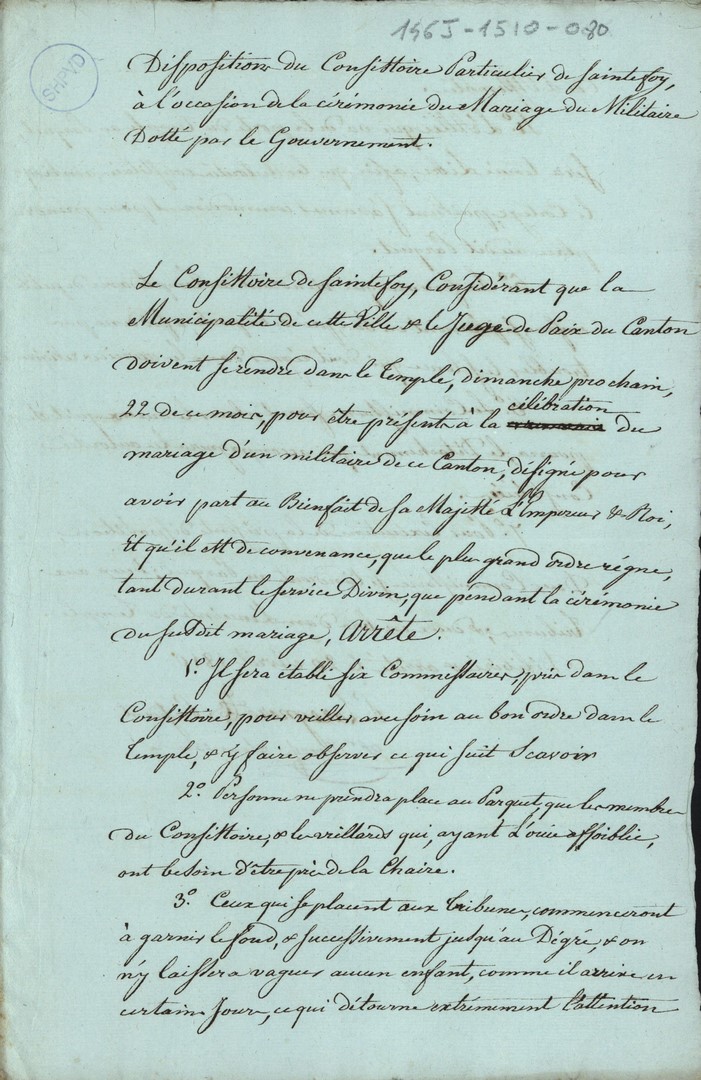 156J-1510-080
SHPVD
Dispositions du Consistoire Particulier de Saintefoy,
à l'occasion de la cérémonie du Mariage du Militaire
Dotté par le Gouvernement.
Le Consistoire de Saintefoy, Considérant que la
Municipalité de cette Ville & le Juge de Paix du Canton
doivent se rendre dans le Temple, dimanche prochain,
célébration
22 de ce mois, pour être présents à la du
mariage d'un militaire de ce Canton, désigné pour
avoir part au Bienfait de sa Majesté L'Empereur & Roi,
Et qu'il est de convenance, que le plus grand ordre régne,
tant durant le service Divin, que pendant la cérémonie
du susdit mariage, Arrête.
1.º Il sera établi six Commissaires, pris dans le
Consistoire, pour veiller avec soin au bon ordre dans le
Temple, & y faire observer ce qui suit Scavoir
2.º Personne ne prendra place au Parquet, que les membres
du Consistoire, & les vieillards qui, ayant L'ouie affoiblie,
ont besoin d'être près de la Chaire.
3.º Ceux qui se placent aux Tribunes, commenceront
à garnir le fond, & successivement jusqu'au Dégré, & on
n'y laissera vaguer aucun enfant, comme il arrive en
certains Jours, ce qui détourne extrémement l'attention